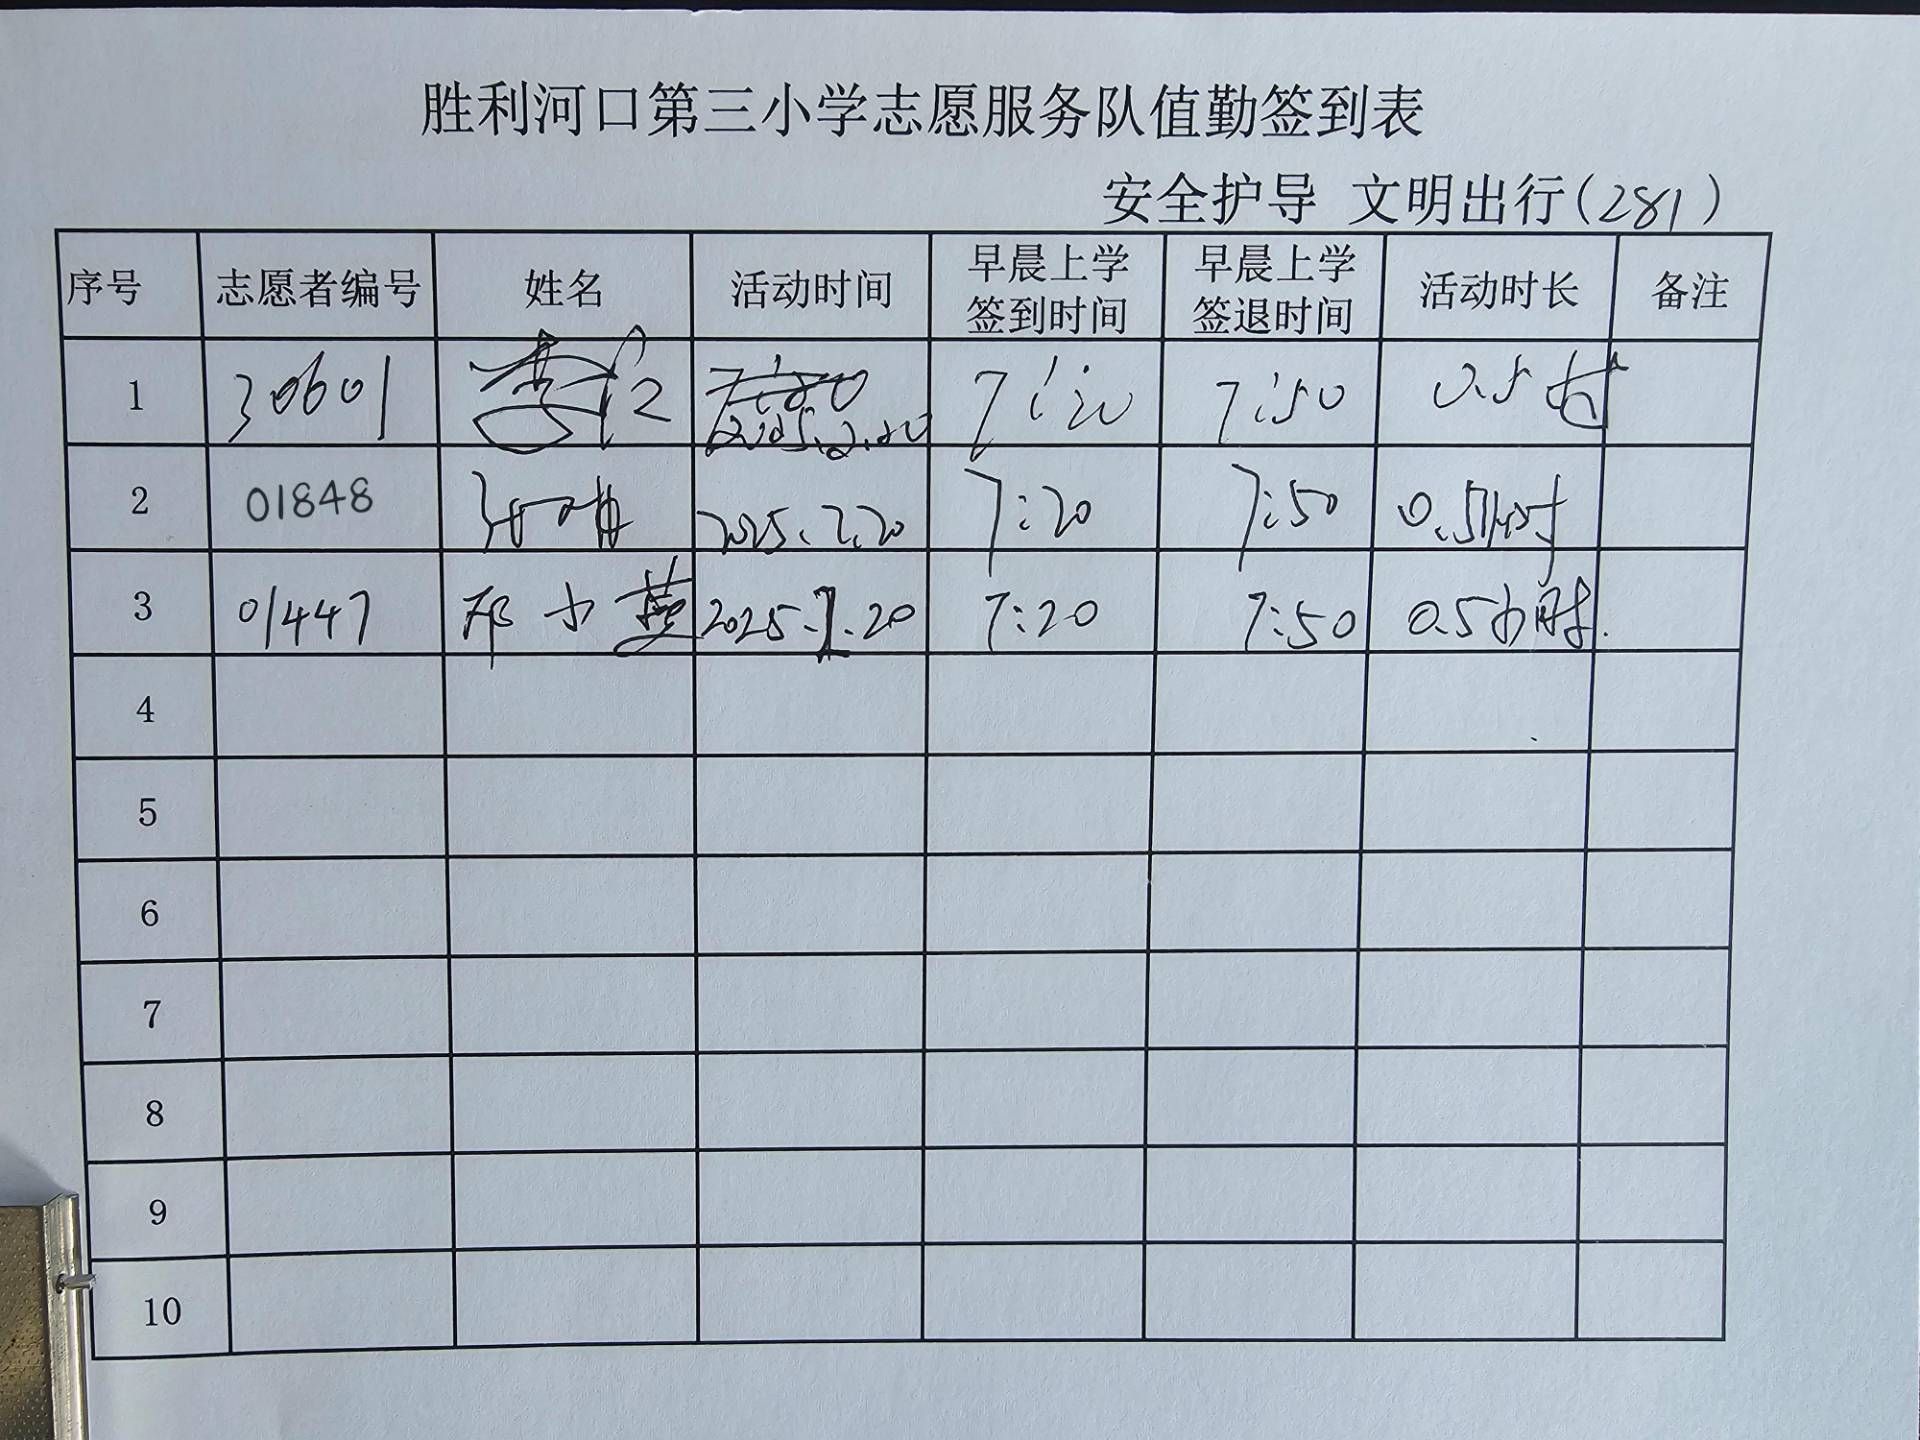 胜利河口第三小学志愿服务队值勤签到表
安全护导 文明出行(281)
序号 志愿者编号 姓名 活动时间 早晨上学签到时间 早晨上学签退时间 活动时长 备注
1 30601 李仁 2025.2.20 7:20 7:50 0.5时
2 01848 2025.2.20 7:20 7:50 0.5小时
3 01447 邓小燕 2025.2.20 7:20 7:50 0.5小时.
4
5
6
7
8
9
10